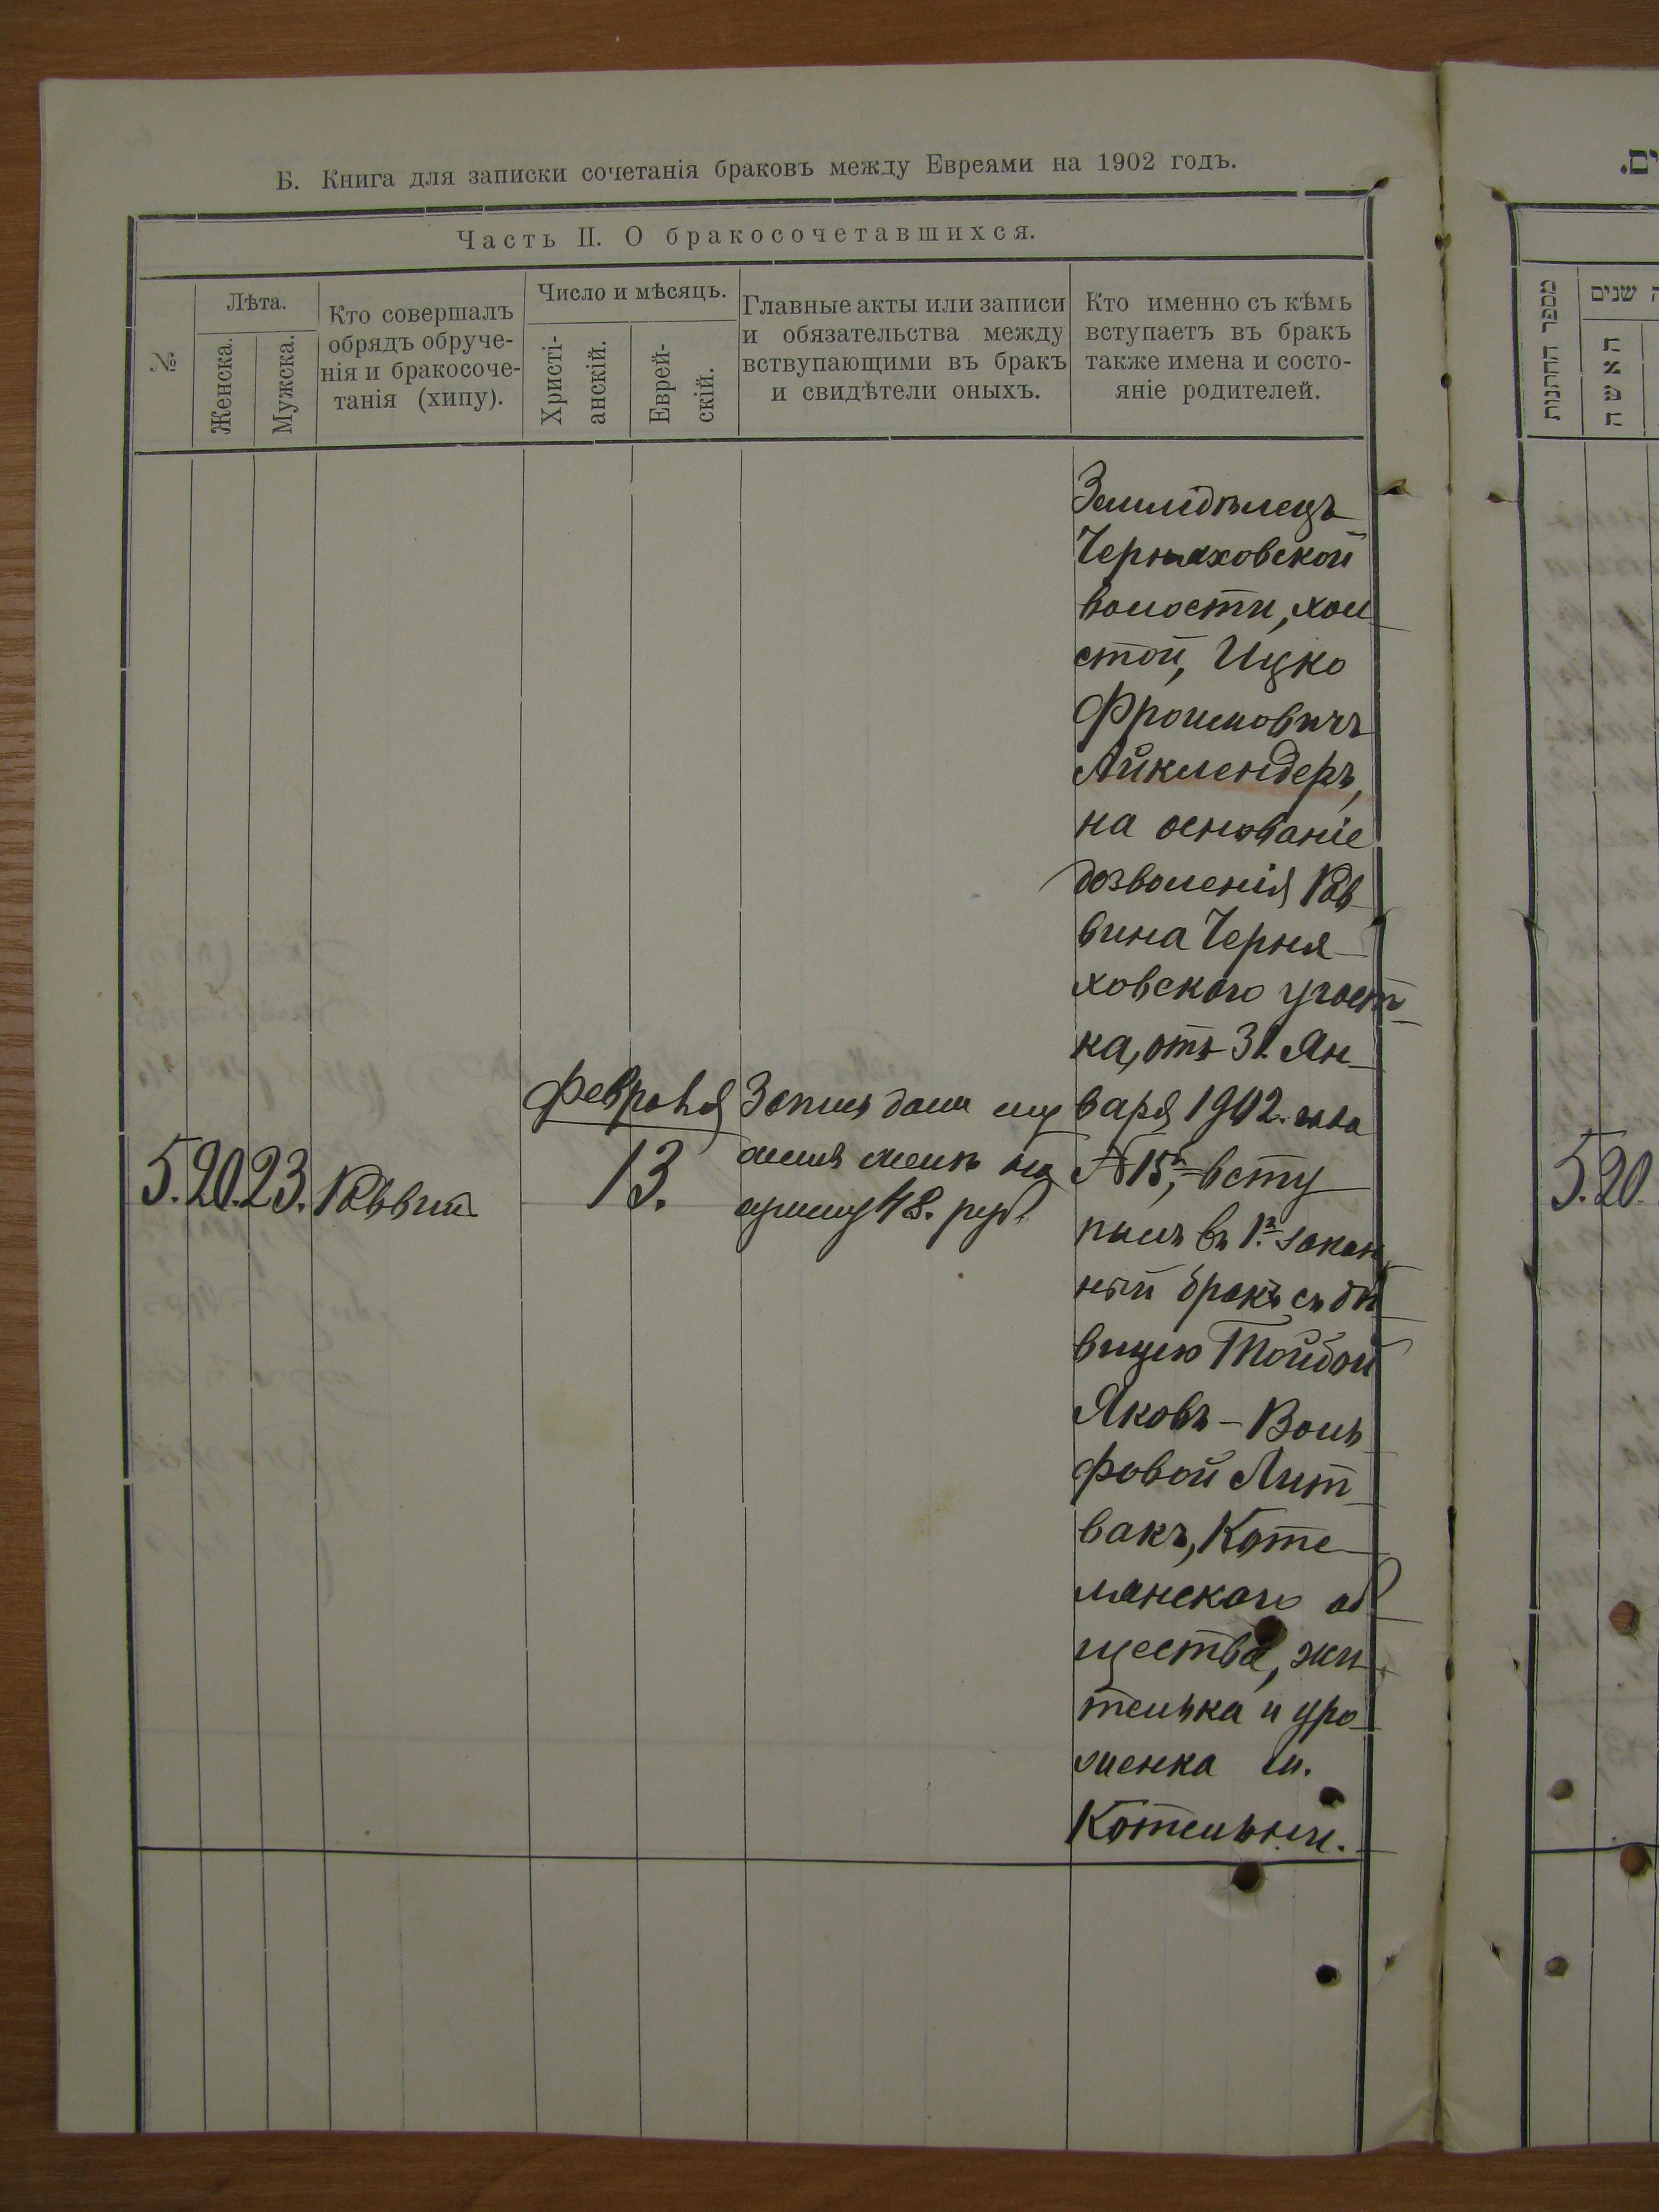 Б. Книга для записки сочетанія браковъ между Евреями на 1902 годъ.
Часть II. О бракосочетавшихся.
№
Лѣта.
Женска.
Мужска.
Кто совершалъ
обрядъ обруче-
нія и бракосоче-
танія (хипу).
Число и мѣсяцъ.
Христі-
анскій.
Еврей-
скій.
Главные акты или записи
и обязательства между
вствупающими въ бракъ
и свидѣтели оныхъ.
Кто именно съ кѣмъ
вступаетъ въ бракъ
также имена и состо-
яніе родителей.
5. 20. 23. Раввин
Февраля
13.
Запись дана му
жемъ женѣ на
сумму 48. руб.
Землидѣлецъ
Черняховской
волости, хол
стой, Ицко
Фроимовичъ
Айклендеръ,
на основаніе
дозволенія Рав
вина Черня
ховского участ
ка, отъ 31. Ян
варя 1902. года
№ 15, всту
пилъ въ 1й закон
ный бракъ съ дѣ
вицею Тойбой
Яковъ-Воль
фовой Лит
вакъ, Коте
лянского об
щества, жи
телька и уро
женка м.
Котельни.
ים.
מספר החתונות
שנים
האשה
5. 20